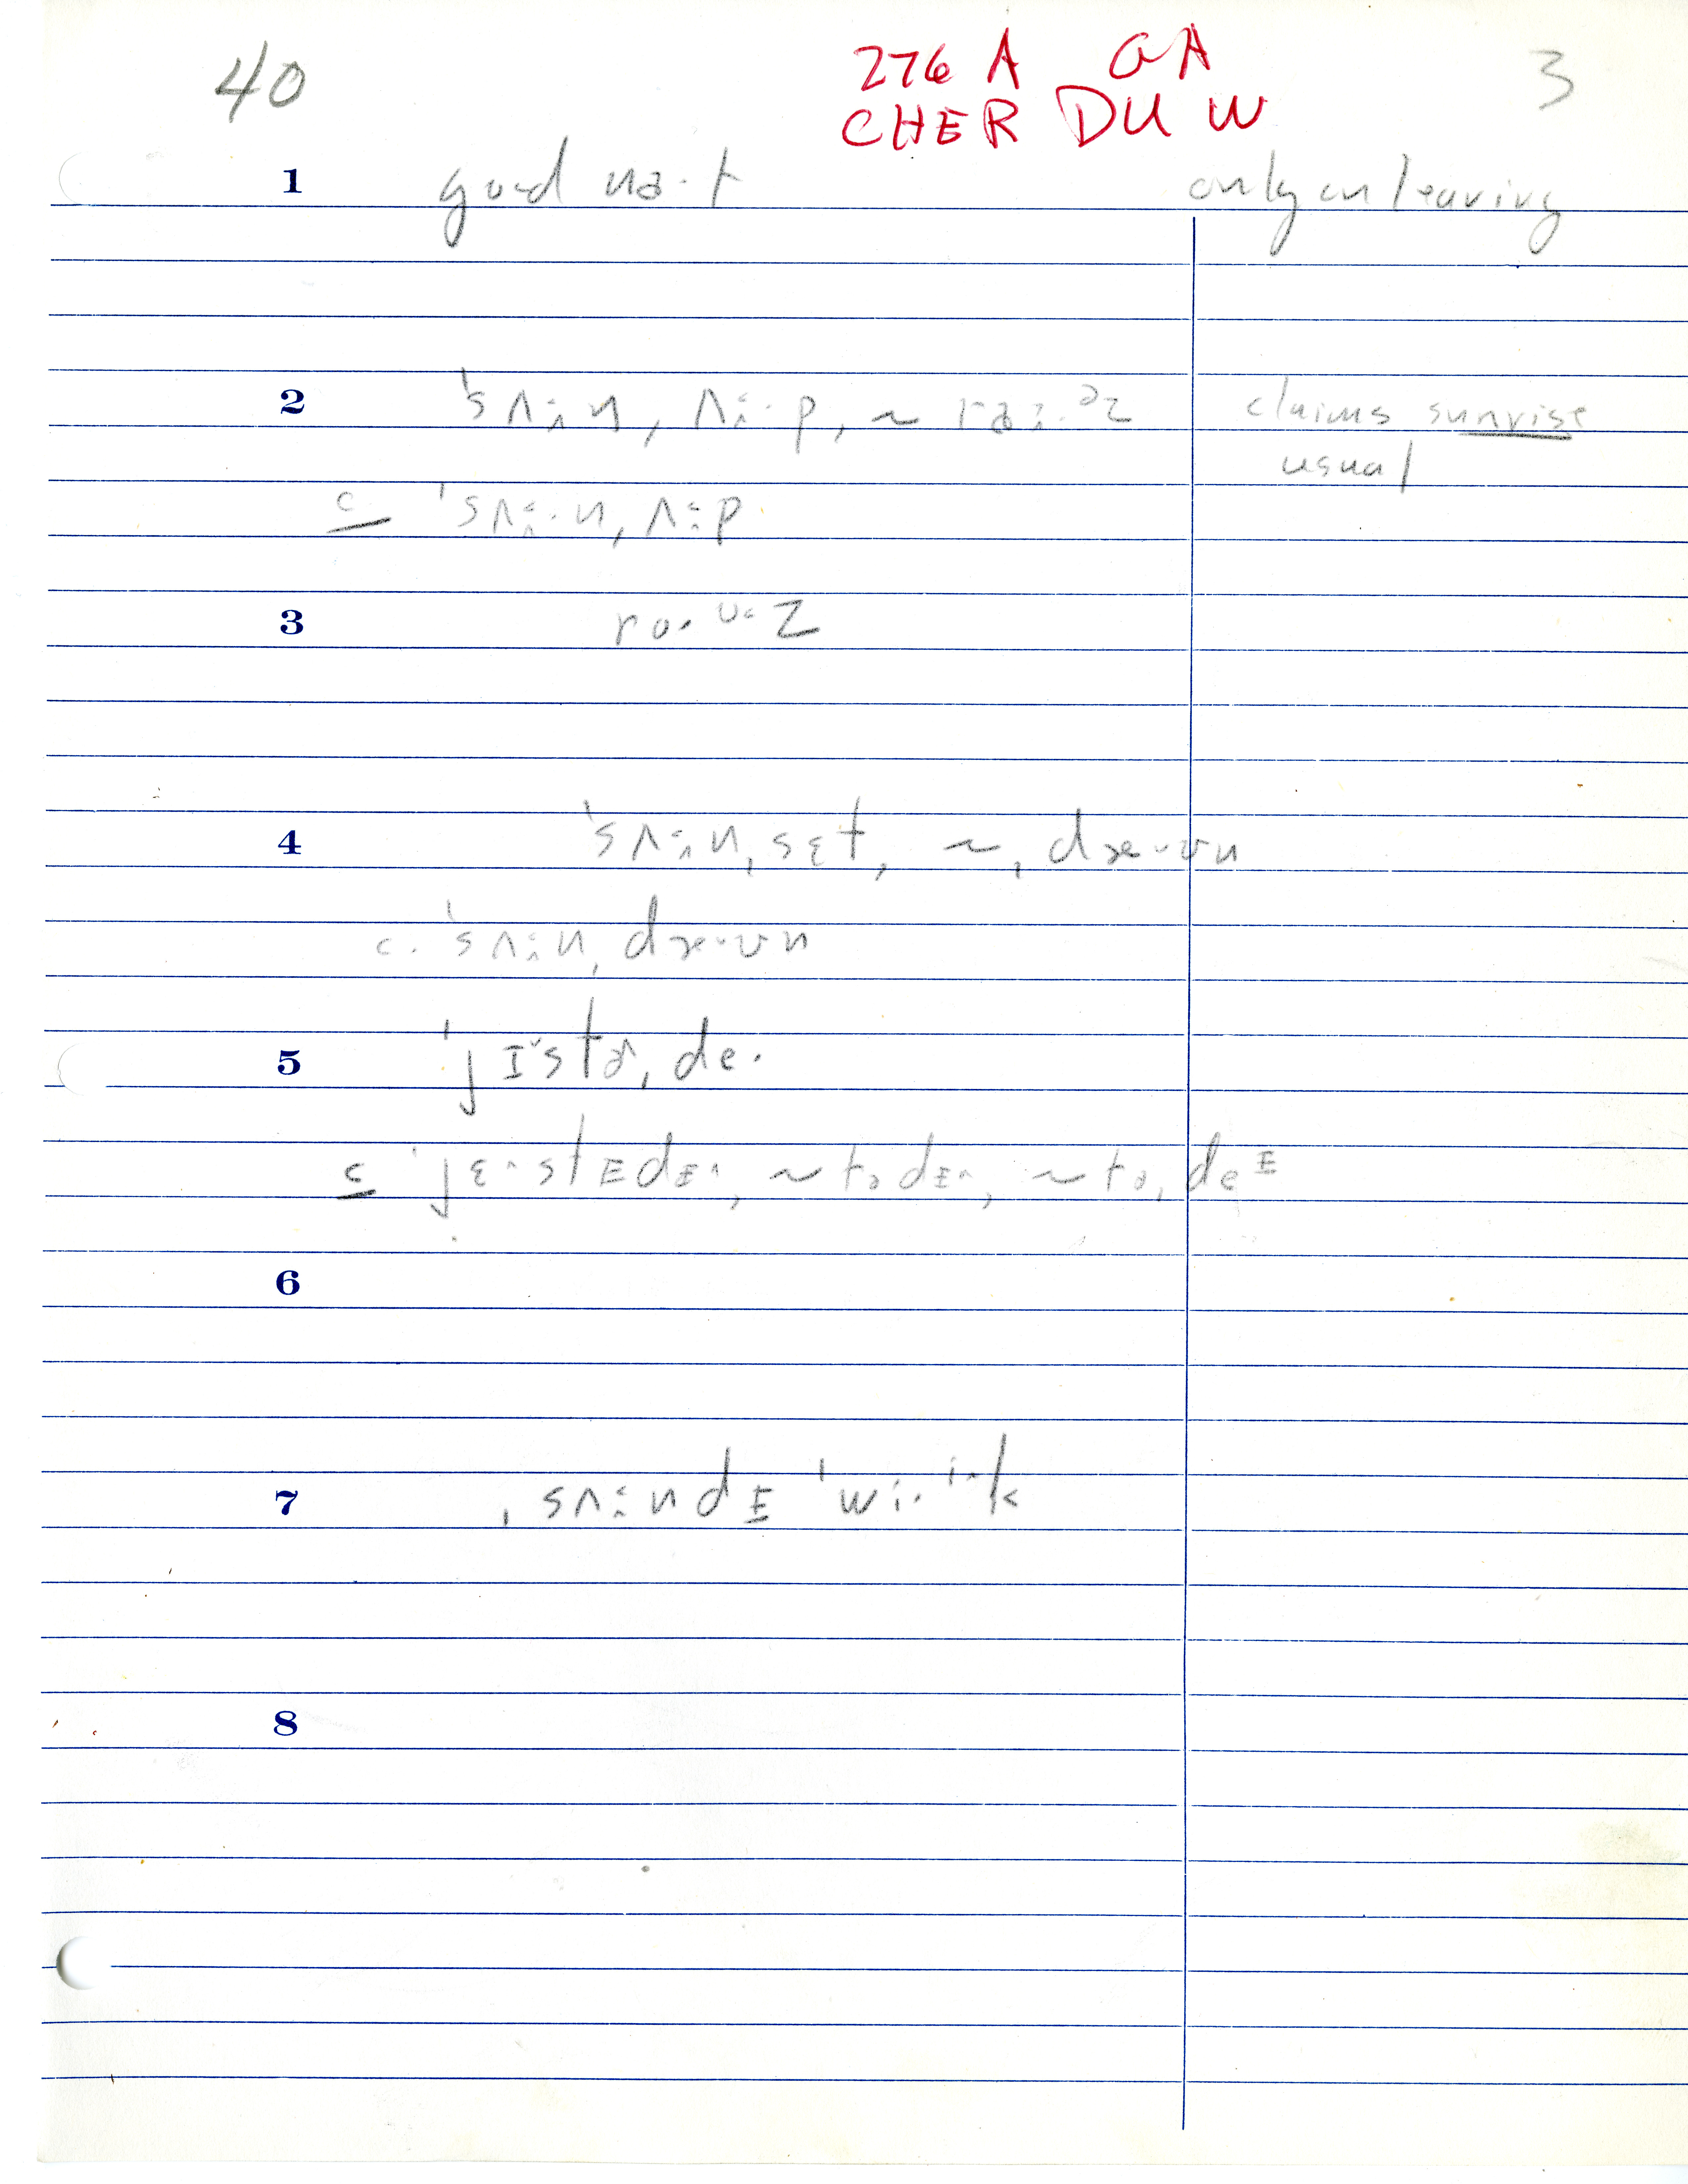 40
276 A GA
3
CHER DU W
1 good na·t only on leaving
2 ˈsʌ·n, ʌ·p, ~ raɪ·ᵊz claims sunrise
usual
c ˈsʌ·n, ʌ·p
3 ro·ᶷz
4 ˈsʌ·n, sɛt, ~, dæ·ʊn
c. ˈsʌ·n, dæ·ʊn
5 ˈjɪstə, de·
c ˈjɛ·stɪdɪ, ~ tədɪ, ~ tə, deᴵ
6
7 ˌsʌ·ndɪ ˈwi·ⁱk
8